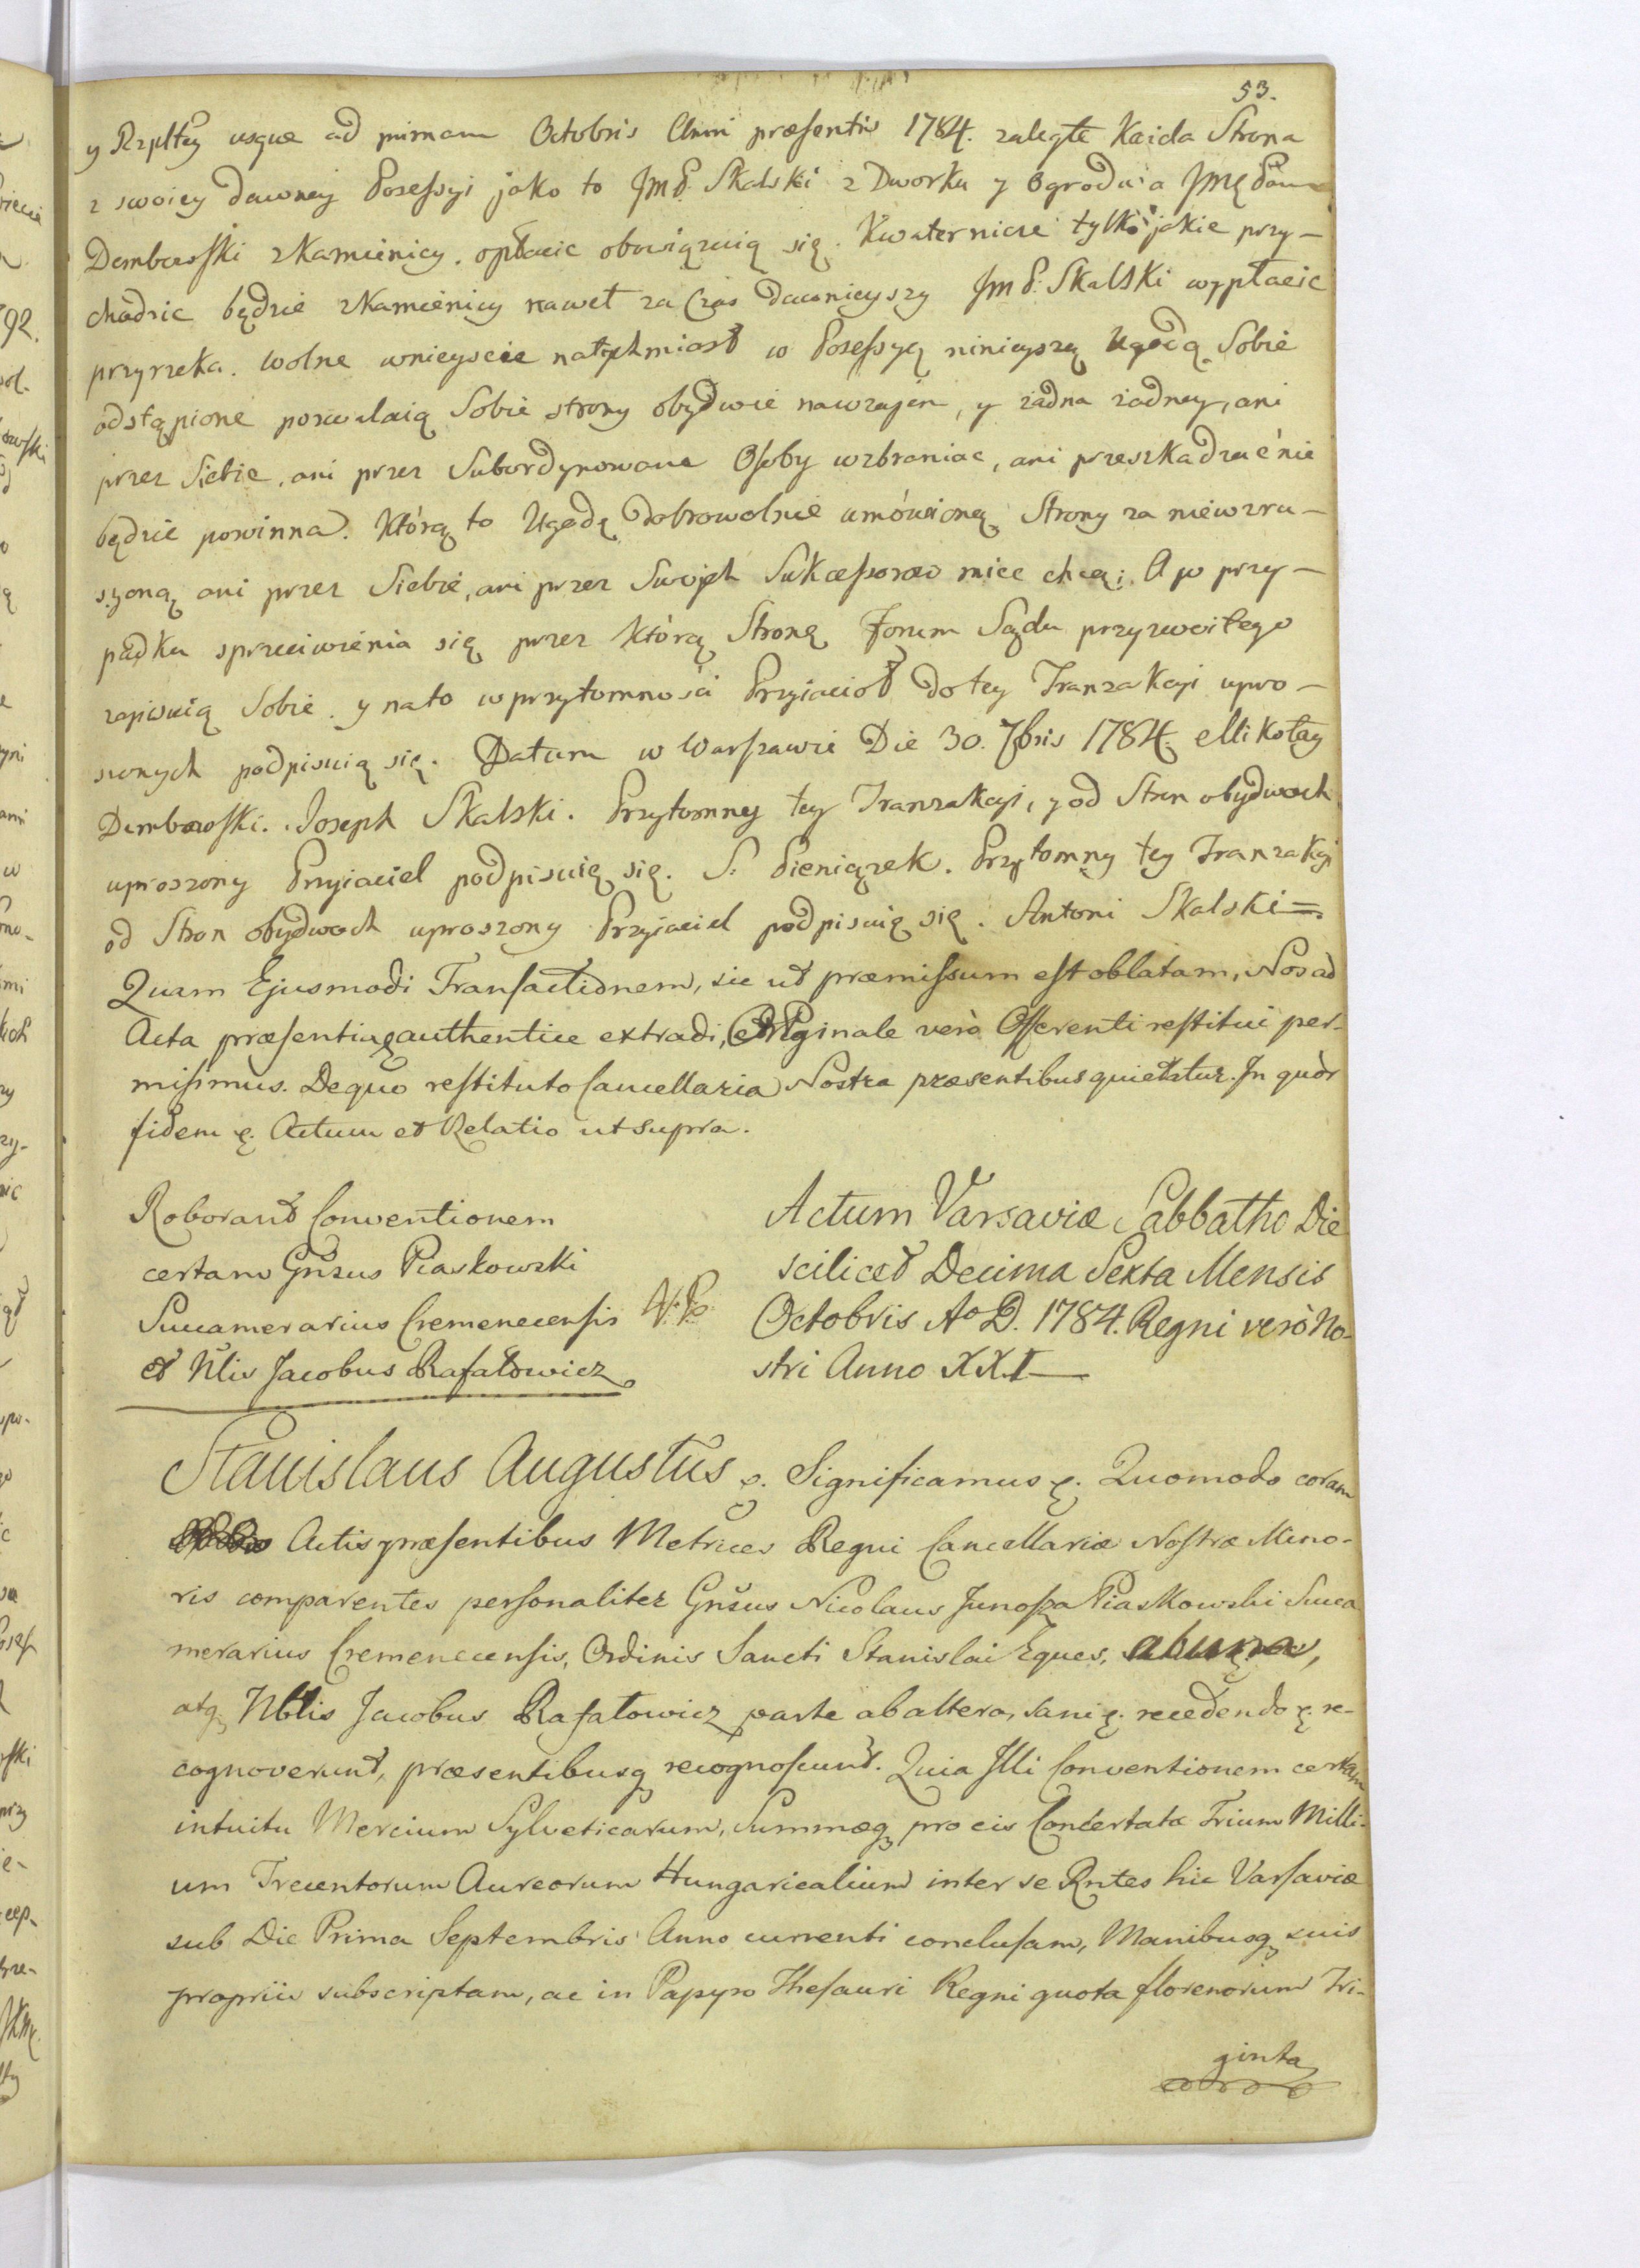 53.
y Rzpltey usque ad primam Octobris Anni præsentis 1784. zaległe Każda Strona
z swoiey dawney Possessyi jako to Jm P. Skalski z Dworku y Ogrodu a Jmę Pan
Dembowski z Kamienicy. opłacic obowiązuią się. Kwaternicze tylko jakie przy-
chodzic będzie z Kamienicy nawet za Czas dawnieyszy Jm P. Skalski wypłacic
przyrzeka. Wolne wnieyscie natychmiast w Possessyą ninieyszą Ugodą Sobie
odstąpione pozwalaią Sobie strony obydwie nawzajem, y żadna żadney, ani
przez Siebie, ani przez Subordynowane Osoby wzbraniac, ani przeszkadzać nie
będzie powinna. Którą to Ugodę dobrowolnie umówioną Strony za niewzru-
szoną ani przez Siebie, ani przez Swojch Sukcessorow miec chcą; A w przy-
padku sprzeciwienia się przez Którą Stronę Forum Sądu przyzwoitego
zapisuią Sobie. y na to w przytomności Przyiacioł do tey Tranzakcyi upro-
szonych podpisuią się. Datum w Warszawie Die 30. 7bris 1784. Mikołay
Dembowski. Joseph Skalski. Przytomny tey Tranzakcyi, y od Stron obydwoch
uproszony Przyiaciel podpisuię się. S. Pieniązek. Przytomny tey Tranzakcyi
od Stron obydwoch uproszony Przyiaciel podpisuię się. Antoni Skalski =
Quam Ejusmodi Transactionem, sic ut præmissum est oblatam, Nos ad
Acta præsentia authentice extradi, Originale verò Offerenti restitui per-
misimus. De quo restituto Cancellaria Nostra præsentibus quietatur. In quor
fidem &. Actum et Relatio ut supra.
Roborant Conventionem
certam Gnsus Piaskowski
Succamerarius Cremenecensis
et Nlis Jacobus Rafałowicz
Actum Varsaviæ Sabbatho Die
scilicet Decima Sexta Mensis
Octobris Ao D. 1784. Regni verò No-
stri Anno XXI
Stanislaus Augustus &. Significamus &. Quomodo coram
Actis præsentibus Metrices Regni Cancellariæ Nostræ Mino-
ris comparentes personaliter Gnsus Nicolaus Junosza Piaskowski Succa
merarius Cremenecensis, Ordinis Sancti Stanislai Eques,
atq Nblis Jacobus Rafałowicz parte ab altera, sani &. recedendo &. re-
cognoverunt, præsentibusq recognoscunt. Quia Illi Conventionem certam
intuitu Mercium Sylveticarum, Summæq pro eis Concertatæ Trium Milli-
um Trecentorum Aureorum Hungaricalium inter se Rntes hic Varsaviæ
sub Die Prima Septembris Anno currenti conclusam, Manibusq suis
propriis subscriptam, ac in Papyro Thesauri Regni quota florenorum Tri-
ginta